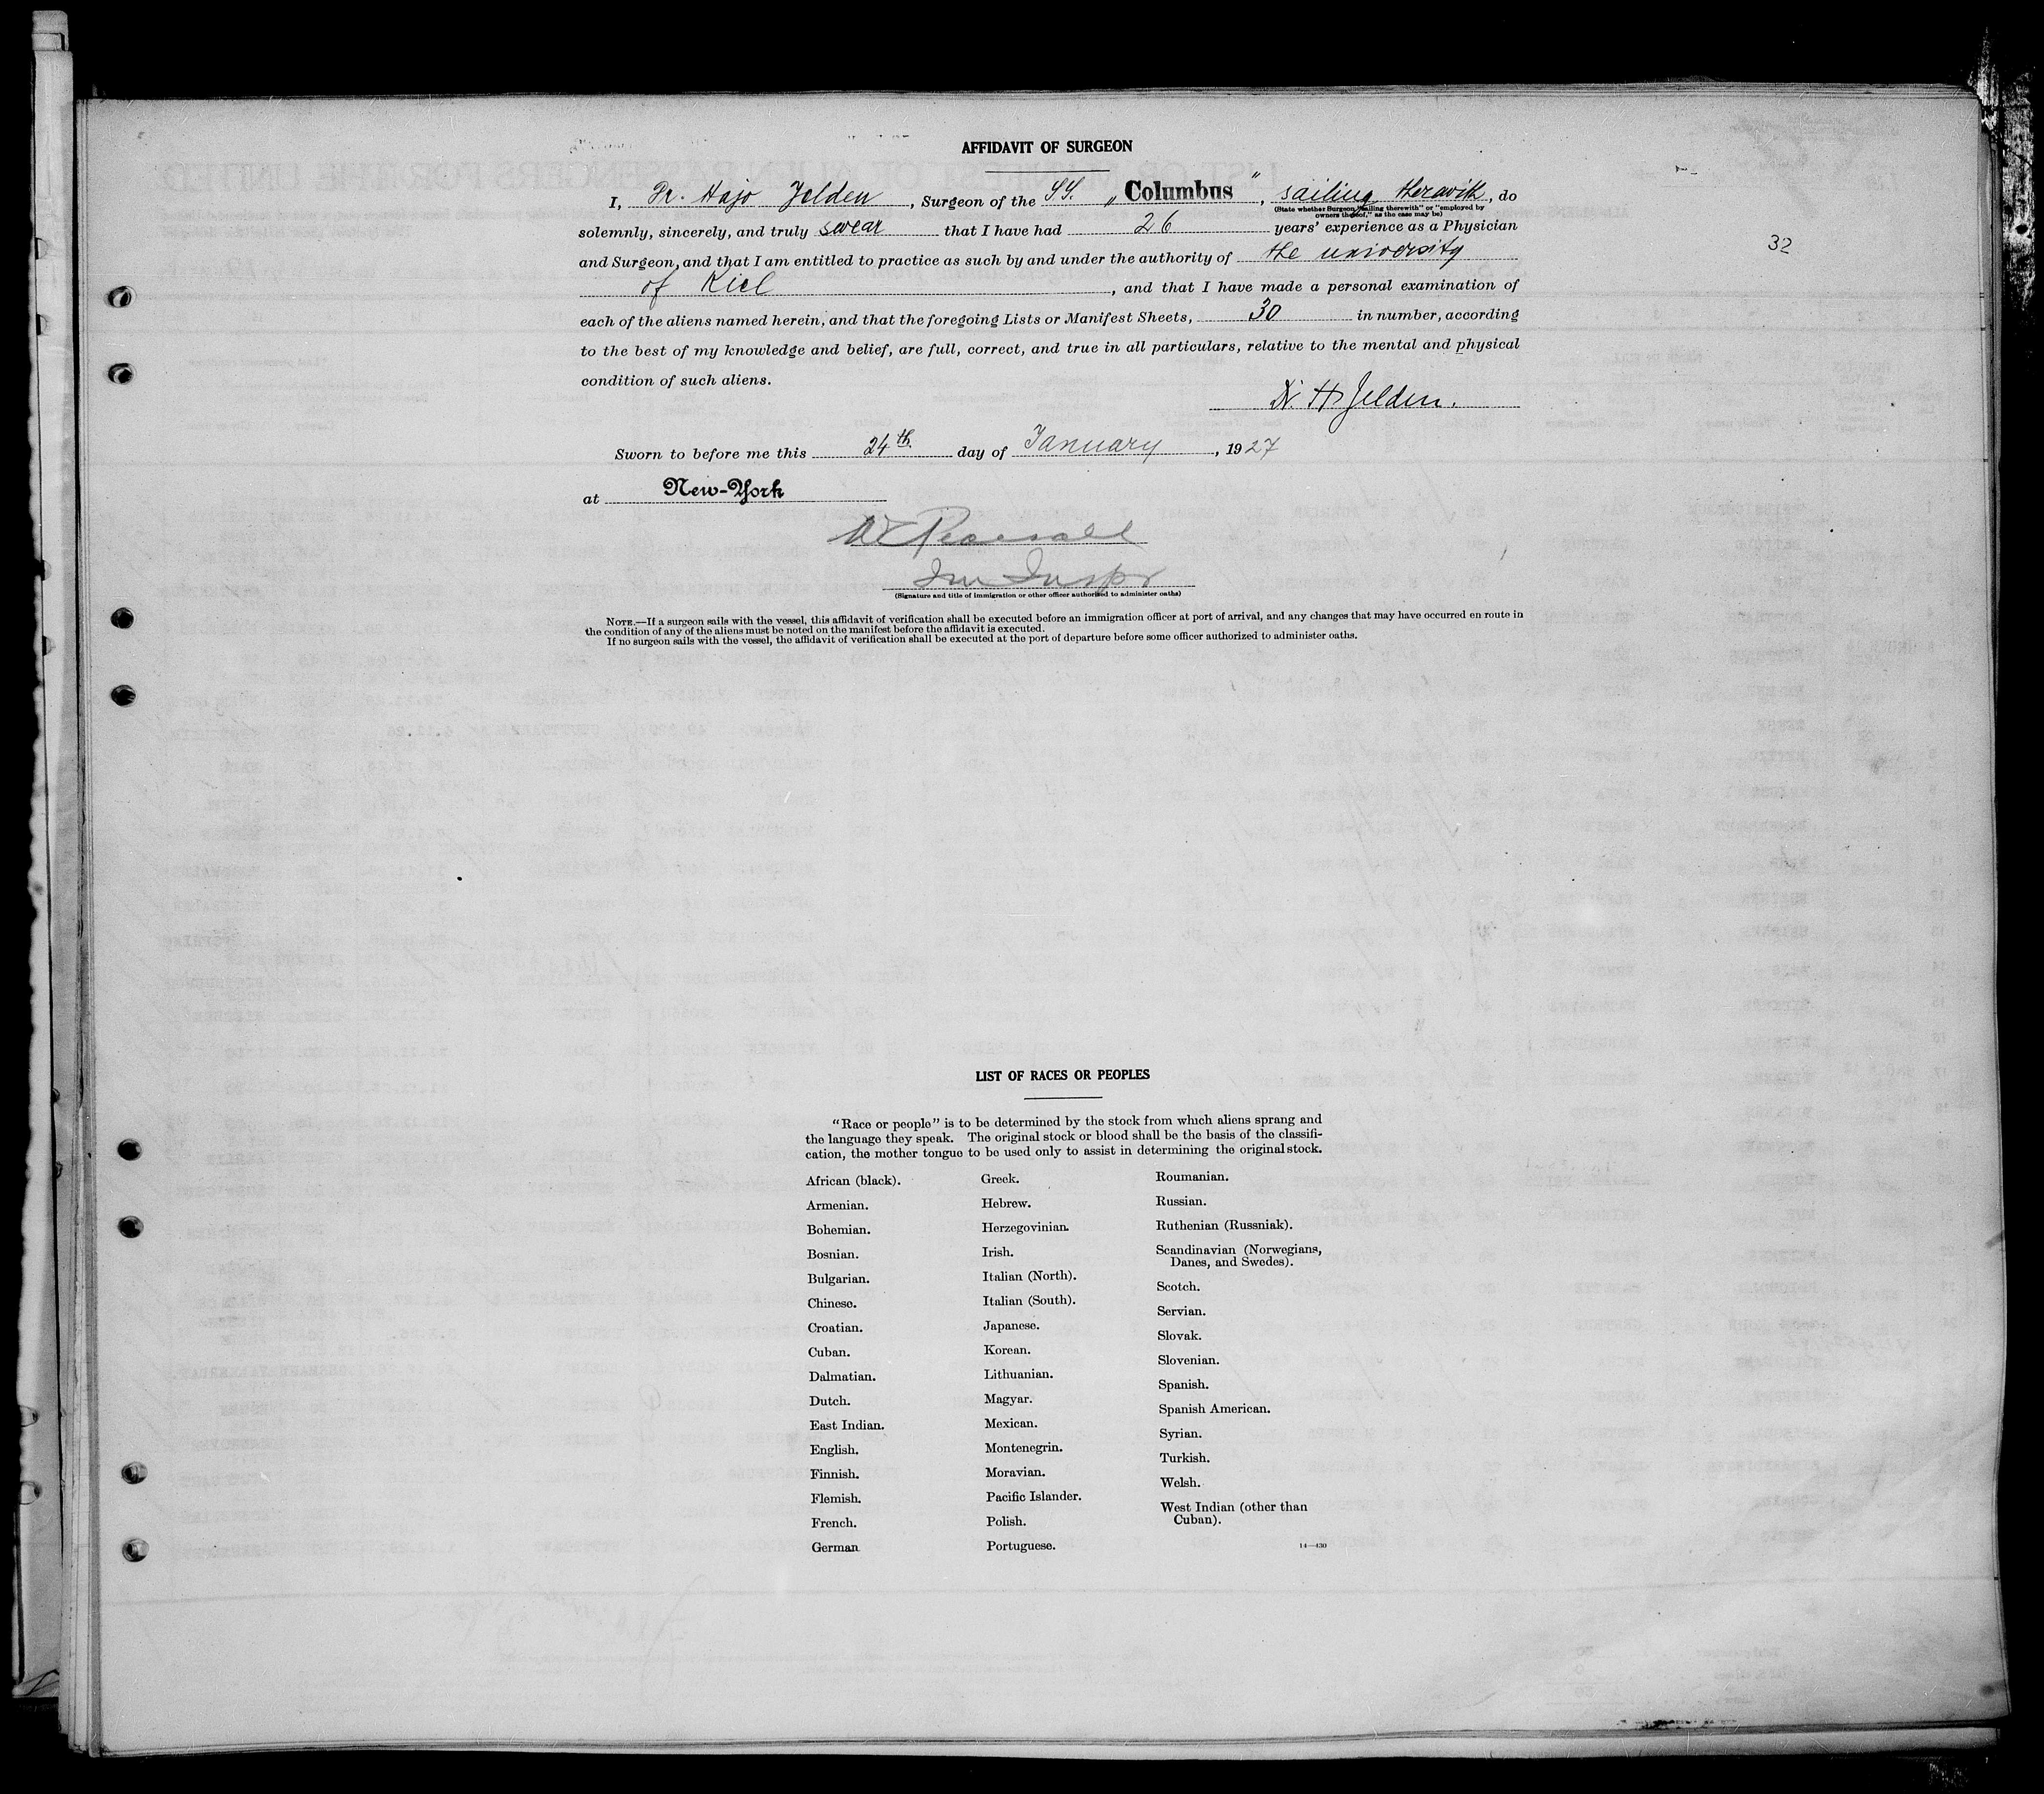 AFFIDAVIT OF SURGEON
I, Dr. Hajo Jelden, Surgeon of the SS. „Columbus", sailing therewith, do
(State whether Surgeon "sailing therewith" or "employed by
owners thereof," as the case may be)
solemnly, sincerely, and truly swear that I have had 26 years' experience as a Physician
32
and Surgeon, and that I am entitled to practice as such by and under the authority of the university
of Kiel, and that I have made a personal examination of
each of the aliens named herein, and that the foregoing Lists or Manifest Sheets, 30 in number, according
to the best of my knowledge and belief, are full, correct, and true in all particulars, relative to the mental and physical
condition of such aliens.
Dr. H. Jelden.
Sworn to before me this 24th day of January, 1927
at New-York
Pearsall
Im Inspr
(Signature and title of immigration or other officer authorized to administer oaths)
NOTE.—If a surgeon sails with the vessel, this affidavit of verification shall be executed before an immigration officer at port of arrival, and any changes that may have occurred en route in
the condition of any of the aliens must be noted on the manifest before the affidavit is executed.
If no surgeon sails with the vessel, the affidavit of verification shall be executed at the port of departure before some officer authorized to administer oaths.
LIST OF RACES OR PEOPLES
"Race or people" is to be determined by the stock from which aliens sprang and
the language they speak. The original stock or blood shall be the basis of the classifi-
cation, the mother tongue to be used only to assist in determining the original stock.
African (black).
Armenian.
Bohemian.
Bosnian.
Bulgarian.
Chinese.
Croatian.
Cuban.
Dalmatian.
Dutch.
East Indian.
English.
Finnish.
Flemish.
French.
German
Greek.
Hebrew.
Herzegovinian.
Irish.
Italian (North).
Italian (South).
Japanese.
Korean.
Lithuanian.
Magyar.
Mexican.
Montenegrin.
Moravian.
Pacific Islander.
Polish.
Portuguese.
Roumanian.
Russian.
Ruthenian (Russniak).
Scandinavian (Norwegians,
Danes, and Swedes).
Scotch.
Servian.
Slovak.
Slovenian.
Spanish.
Spanish American.
Syrian.
Turkish.
Welsh.
West Indian (other than
Cuban).
14—430